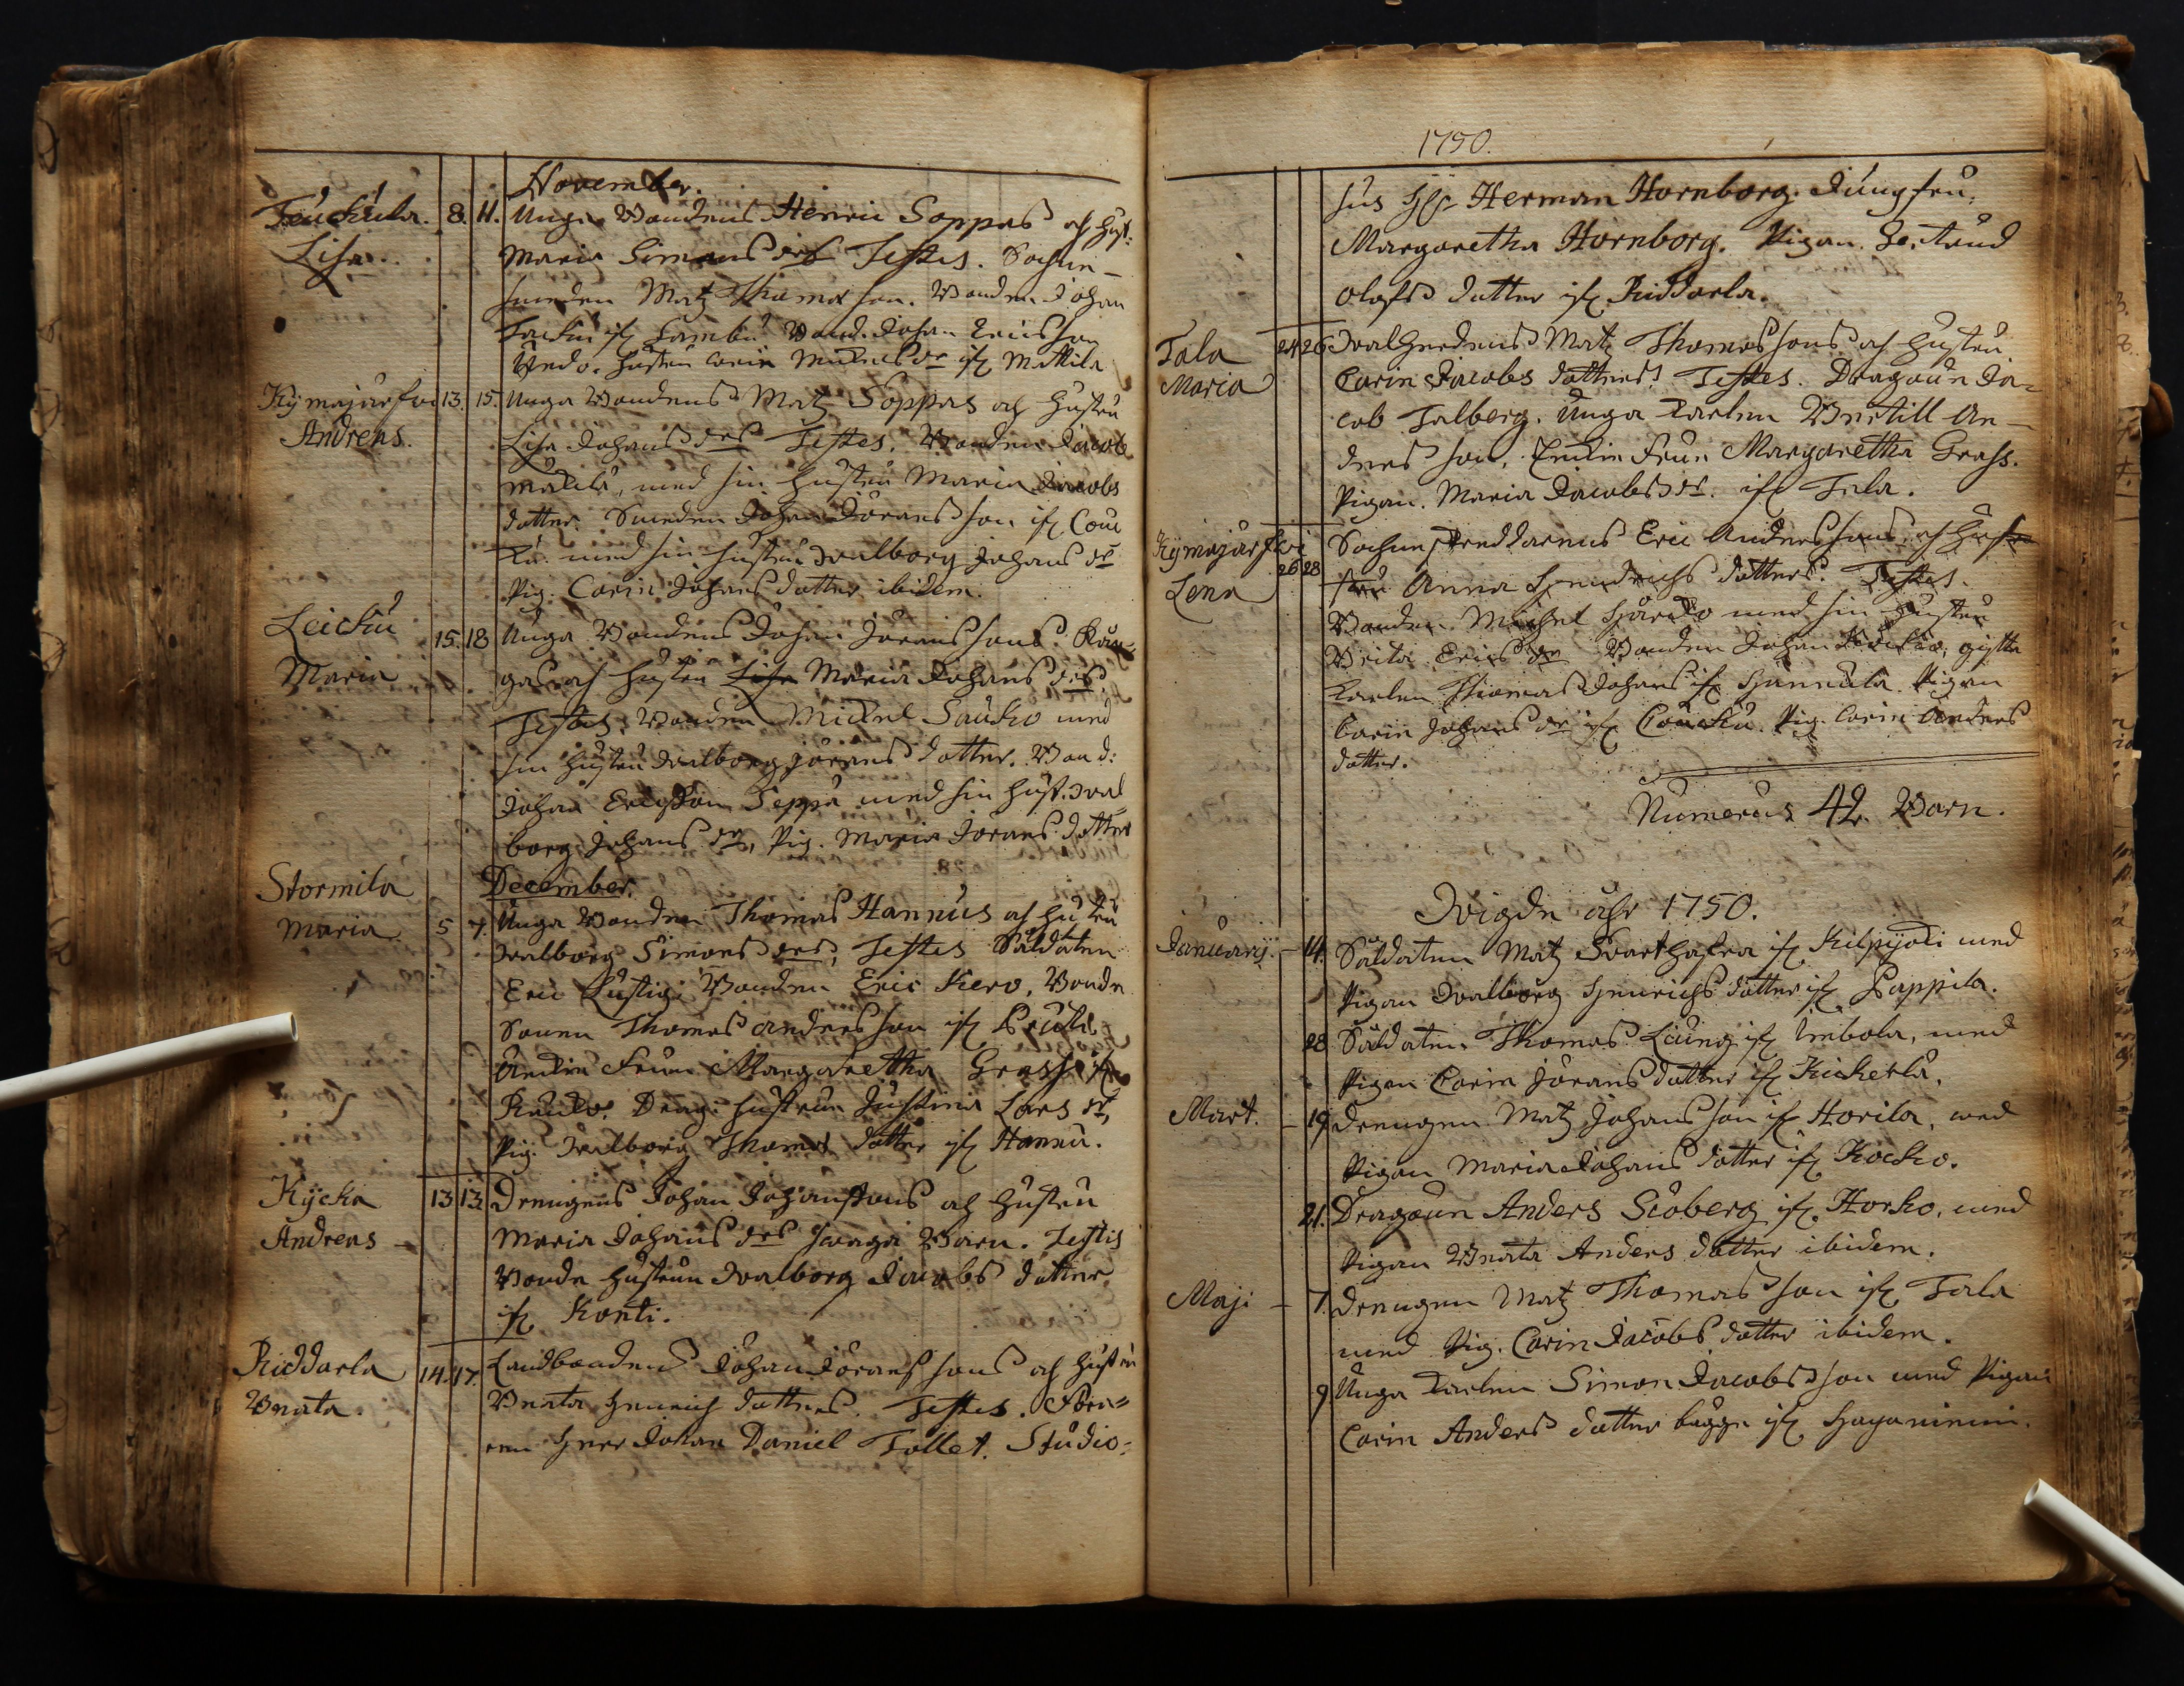 November.
Teuckula. 8. 11. Unga Bondens Henric Soppas och hust:
Lisa. Maria Simons drs Testes. Sochne-
smeden Matz Thomas son. Bonden Johan
ifr. Lambu Bond. Johan Ericsson
Undo. hustru Carin Michels dr ifr. Mattila
Kymäjärfwi 13. 15. Unga Bondens Matz Soppas och hustru
Andreas. Lisa Johans drs Testes. Bonden Jacob
med sin hustru Maria Jacobs
dotter. Smeden Johan Jörans son ifr.
med sin hustru Walborg Johans dr
Pig. Carin Johans dotter ibidem.
Leicku 15. 18 Unga Bondens Johan Jörans sons
Maria gas och hustru Maria Johans drs
Testes. Bonden Michel Sauko med
sin hustru Walborg Jörans dotter. Bond:
Johan Ericsson Seppä med sin hust. Wal-
borg Johans dr, Pig. Maria Jörans dotter
December.
Stormila
Maria 5 7. Unga Bonden Thomas Hannus och hustru
Walborg Simons drs, Testes Saldaten
Eric Lustig. Bonden Eric Kero, Bonde
Sonen Thomas Anders son ifr.
Enckie Frun Margaretha Grass ifr
Drag: hustrun Justina Lars dr,
Pig. Walborg Thomas dotter ifr. Hannu.
Kycka 13 13. Drengens Johan Johanssons och hustru
Andreas - Maria Johans drs swaga Barn. Testis
Bonde hustrun Walborg Jacobs dotter
ifr. Konti.
Riddarla 14. 17. Landbondens Johan Jörans sons och hustru
Beata. Beata Henrichs dotters. Testes.
herr Johan Daniel Follet. Studio-
1750.
sus Hr Herman Hornborg. Jungfru,
Margaretha Hornborg. Pigan. Gertrud
Olofs dotter ifr. Riddarla.
Tala 24 26 Walherdens Matz Thomas sons och hustru
Maria Carin Jacobs dotters. Testes. Dragoun Ja-
cob Falberg. Unga Karlen Bertill An-
ders son. Enckie Frun Margaretha Grass.
Pigan. Maria Jacobs dr. ifr. Tala.
Kymäjärfwi Sochne skreddarens Eric Anders sons och hu
26 28
Lena Anna Hendrichs dotters. Testes.
Bonden Michel med sin hustru
Brita Erics dr Bonden Johan gifta
Karlen Thomas Johans ifr. Hannula. Pigan
Carin Johans dr ifr. Pig. Carin Anders
dotter.
Numerus 42. Barn.
Wigde åhr 1750.
Januarij. - 14. Saldaten Matz Swarthafra ifr. Kilpijoki med
Pigan Walborg Henrichs dotter ifr. Pappila.
28 Saldaten Thomas Läung ifr. Imbola, med
Pigan Carin Jörans dotter ifr. Kickerla.
Mart. - 19 Drengen Matz Johans son ifr. Horila, med
Pigan Maria Johans dotter ifr. Kocko.
21. Dragoun Anders Siöberg ifr. Horko, med
Pigan Beata Anders dotter ibidem.
Maji - 7. Drengen Matz Thomas son ifr. Tala
med Pig. Carin Jacobs dotter ibidem.
9 Unga Karlen Simon Jacobs son med Pigan
Carin Anders dotter bägge ifr. Haganiemi.